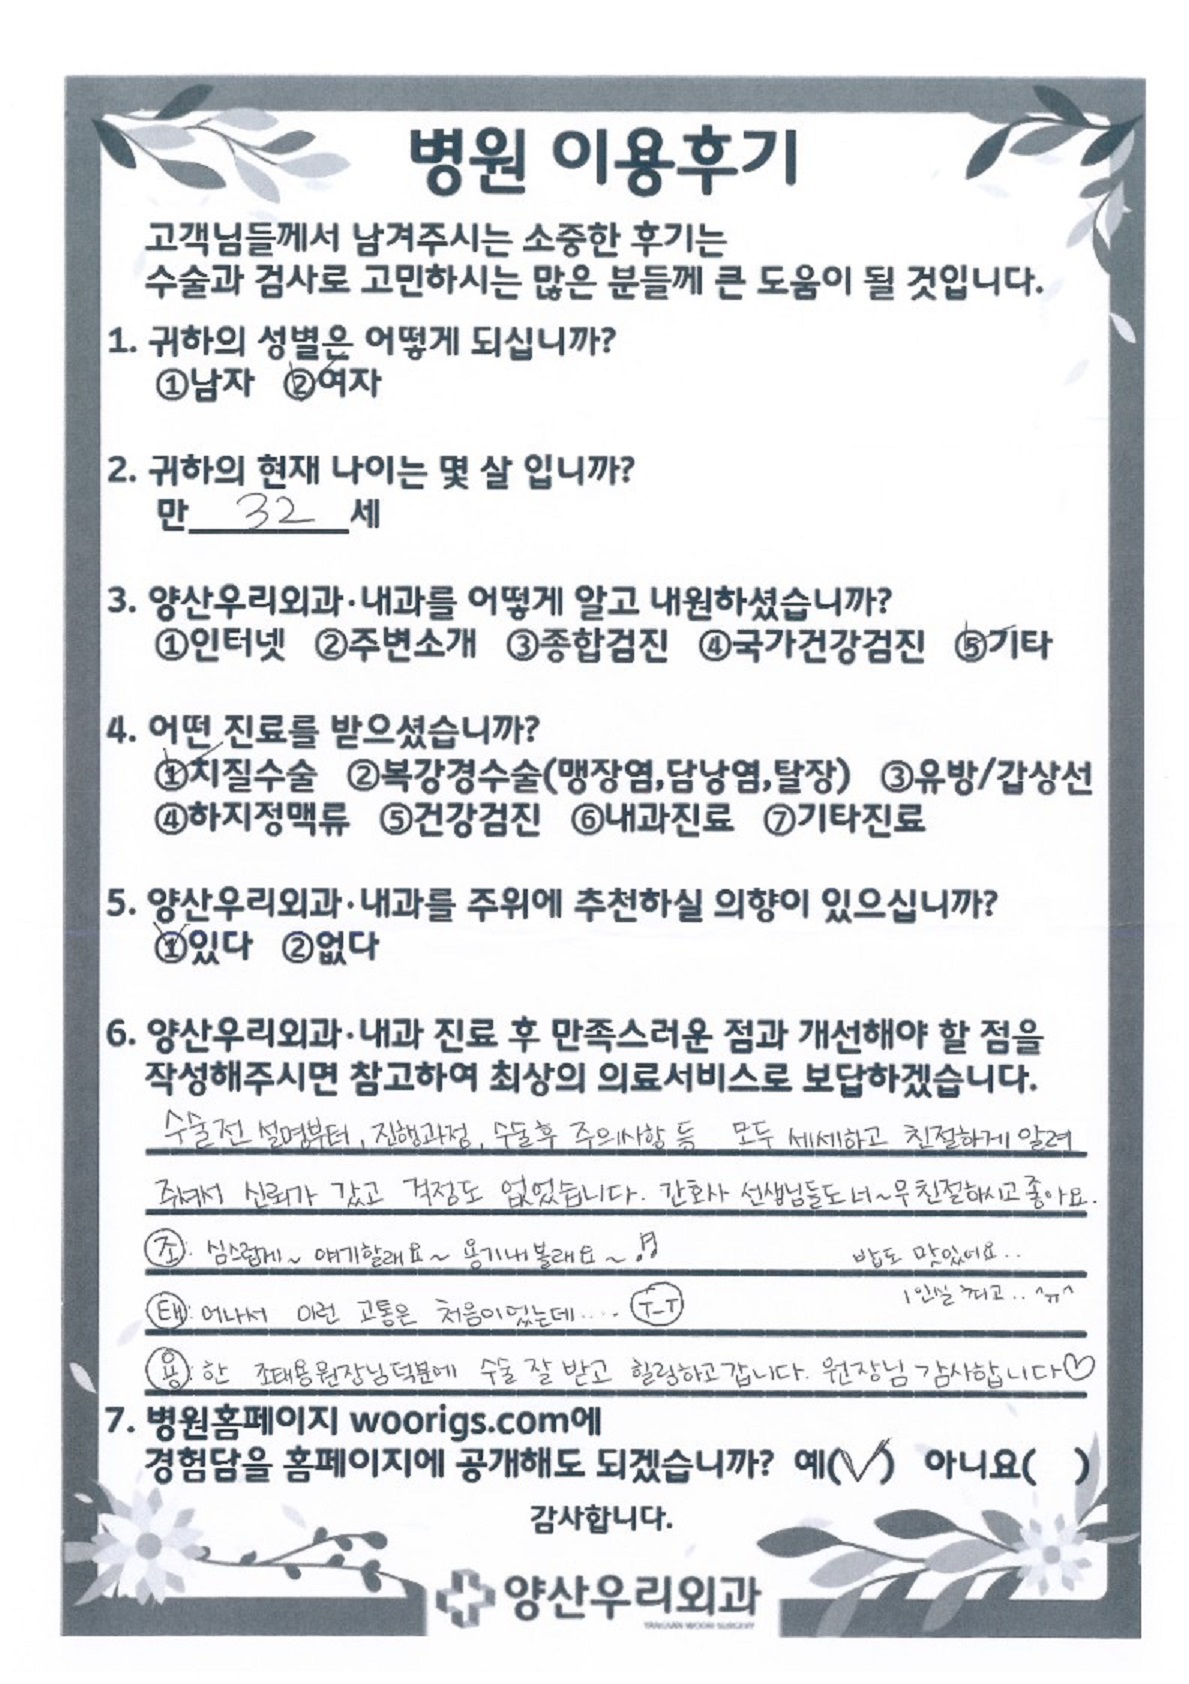 병원 이용후기
고객님들께서 남겨주시는 소중한 후기는
수술과 검사로 고민하시는 많은 분들께 큰 도움이 될 것입니다.
1. 귀하의 성별은 어떻게 되십니까?
①남자 ②여자
2. 귀하의 현재 나이는 몇 살 입니까?
만 32 세
3. 양산우리외과·내과를 어떻게 알고 내원하셨습니까?
①인터넷 ②주변소개 ③종합검진 ④국가건강검진 ⑤기타
4. 어떤 진료를 받으셨습니까?
①치질수술 ②복강경수술(맹장염,담낭염,탈장) ③유방/갑상선
④하지정맥류 ⑤건강검진 ⑥내과진료 ⑦기타진료
5. 양산우리외과·내과를 주위에 추천하실 의향이 있으십니까?
①있다 ②없다
6. 양산우리외과·내과 진료 후 만족스러운 점과 개선해야 할 점을
작성해주시면 참고하여 최상의 의료서비스로 보답하겠습니다.
수술전 설명부터, 진행과정, 수술후 주의사항 등 모두 세세하고 친절하게 알려
주셔서 신뢰가 갔고 걱정도 없었습니다. 간호사 선생님들도 너~무 친절하시고 좋아요.
조: 심스럽게~ 얘기할래요~ 용기내볼래요~♬ 밥도 맛있어요..
태: 어나서 이런 고통은 처음이었는데..... T_T 1인실 최고.. ^ㅠ^
용: 한 조태용원장님덕분에 수술 잘 받고 힐링하고갑니다. 원장님 감사합니다♡
7. 병원홈페이지 woorigs.com에
경험담을 홈페이지에 공개해도 되겠습니까? 예(✓) 아니요( )
감사합니다.
양산우리외과
YANGSAN WOORI SURGERY